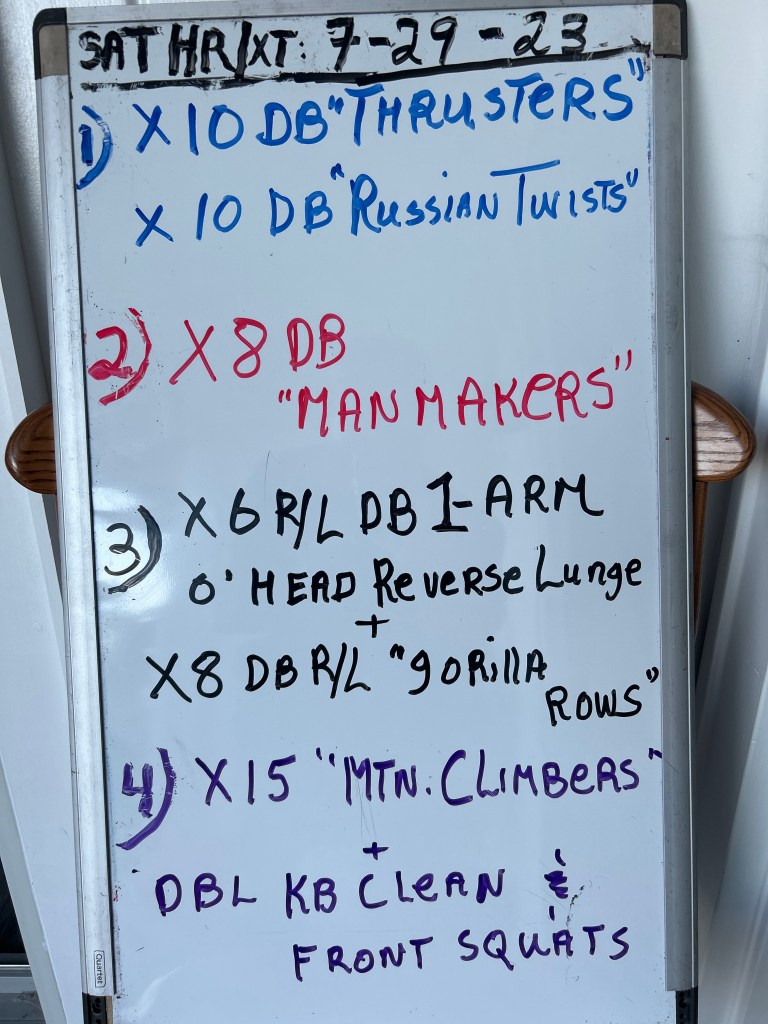 SAT HR/XT: 7-29-23
1) X 10 DB "THRUSTeRS"
X 10 DB "RUSSIAN TWISTS"
2) X 8 DB
"MAN MAKeRS"
3) X 6 R/L DB 1-ARM
O' HEAD Reverse Lunge
+
X8 DB R/L "gorillA
ROWS"
4) X 15 "MTN. CLIMBeRS"
+
DBL KB CleAN &
FRONT SQUATS
Quartet